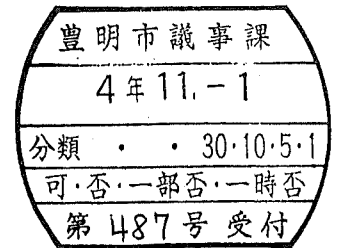 豊明市議事課
4年11.-1
分類 ・ ・ 30・10・5・1
可・否・一部否・一時否
第487号受付